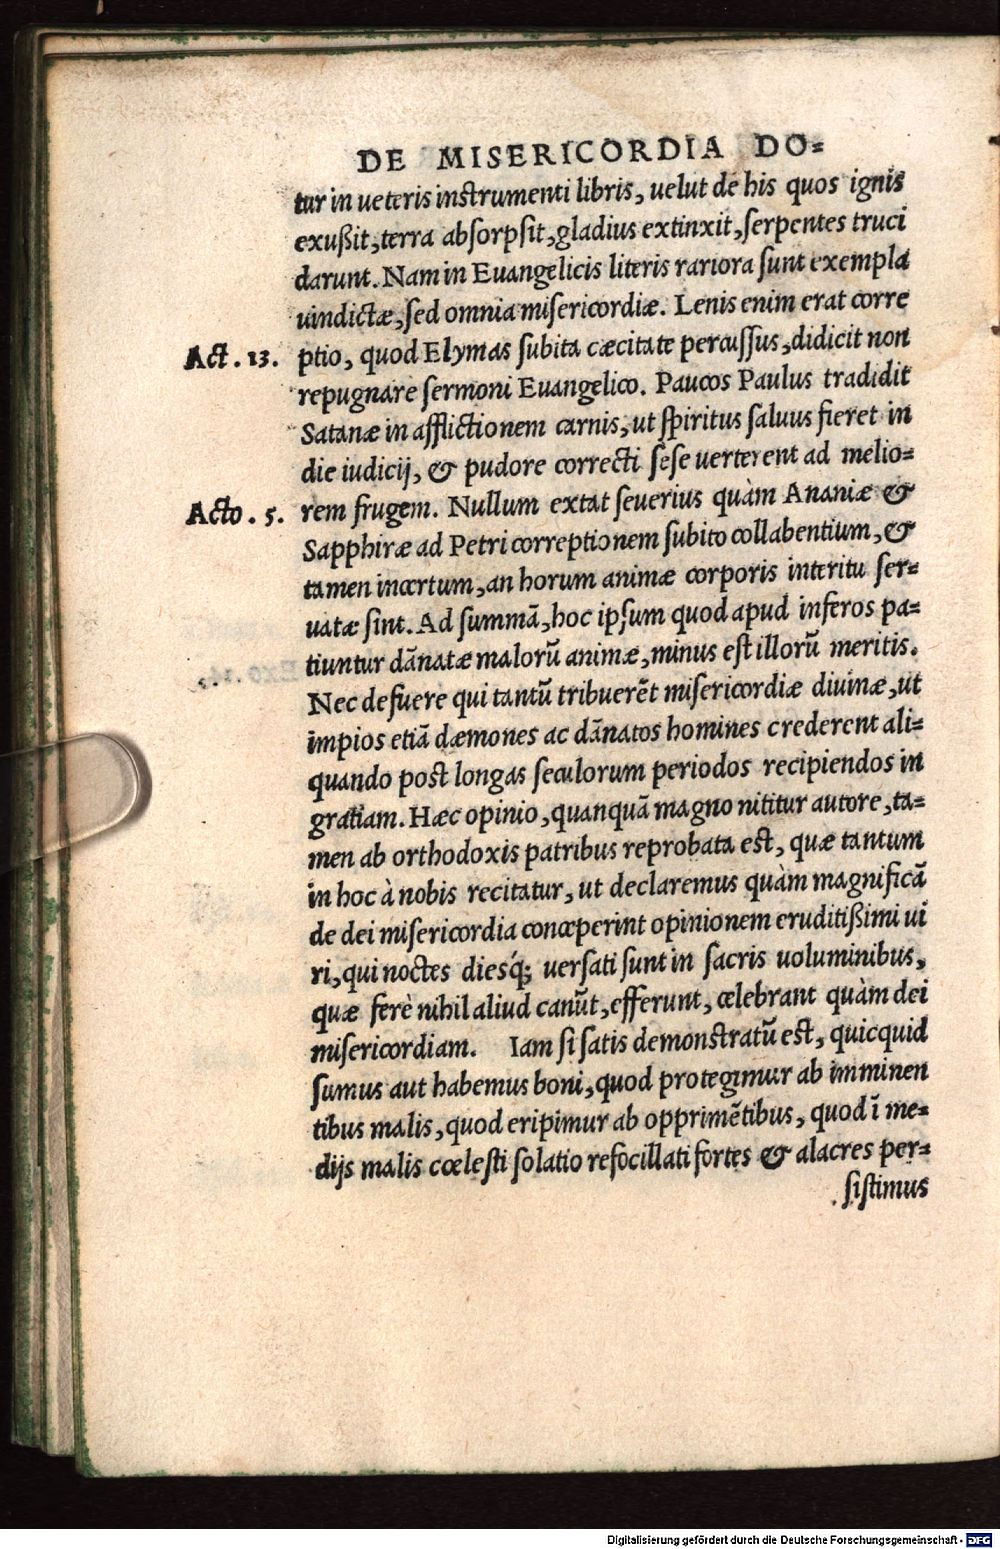 DE MISERICORDIA DO-
tur in ueteris instrumenti libris, uelut de his quos ignis
exußit, terra absorpsit, gladius extinxit, serpentes truci
darunt. Nam in Euangelicis literis rariora sunt exempla
uindictæ, sed omnia misericordiæ. Lenis enim erat corre
Act. 13.
ptio, quod Elymas subita cæcitate percussus, didicit non
repugnare sermoni Euangelico. Paucos Paulus tradidit
Satanæ in afflictionem carnis, ut spiritus saluus fieret in
die iudicij, & pudore correcti sese uerterent ad melio-
Acto. 5.
rem frugem. Nullum extat seuerius quàm Ananiæ &
Sapphiræ ad Petri correptionem subito collabentium, &
tamen incertum, an horum animæ corporis interitu ser-
uatæ sint. Ad summā, hoc ipsum quod apud inferos pa-
tiuntur dānatæ malorū animæ, minus est illorū meritis.
Nec defuere qui tantū tribuerēt misericordiæ diuinæ, ut
impios etiā dæmones ac dānatos homines crederent ali-
quando post longas seculorum periodos recipiendos in
gratiam. Hæc opinio, quanquā magno nititur autore, ta-
men ab orthodoxis patribus reprobata est, quæ tantum
in hoc à nobis recitatur, ut declaremus quàm magnificā
de dei misericordia conceperint opinionem eruditißimi ui
ri, qui noctes diesq́; uersati sunt in sacris uoluminibus,
quæ ferè nihil aliud canūt, efferunt, celebrant quàm dei
misericordiam. Iam si satis demonstratū est, quicquid
sumus aut habemus boni, quod protegimur ab imminen
tibus malis, quod eripimur ab opprimētibus, quod ī me-
dijs malis cœlesti solatio refocillati fortes & alacres per-
sistimus
Digitalisierung gefördert durch die Deutsche Forschungsgemeinschaft - DFG